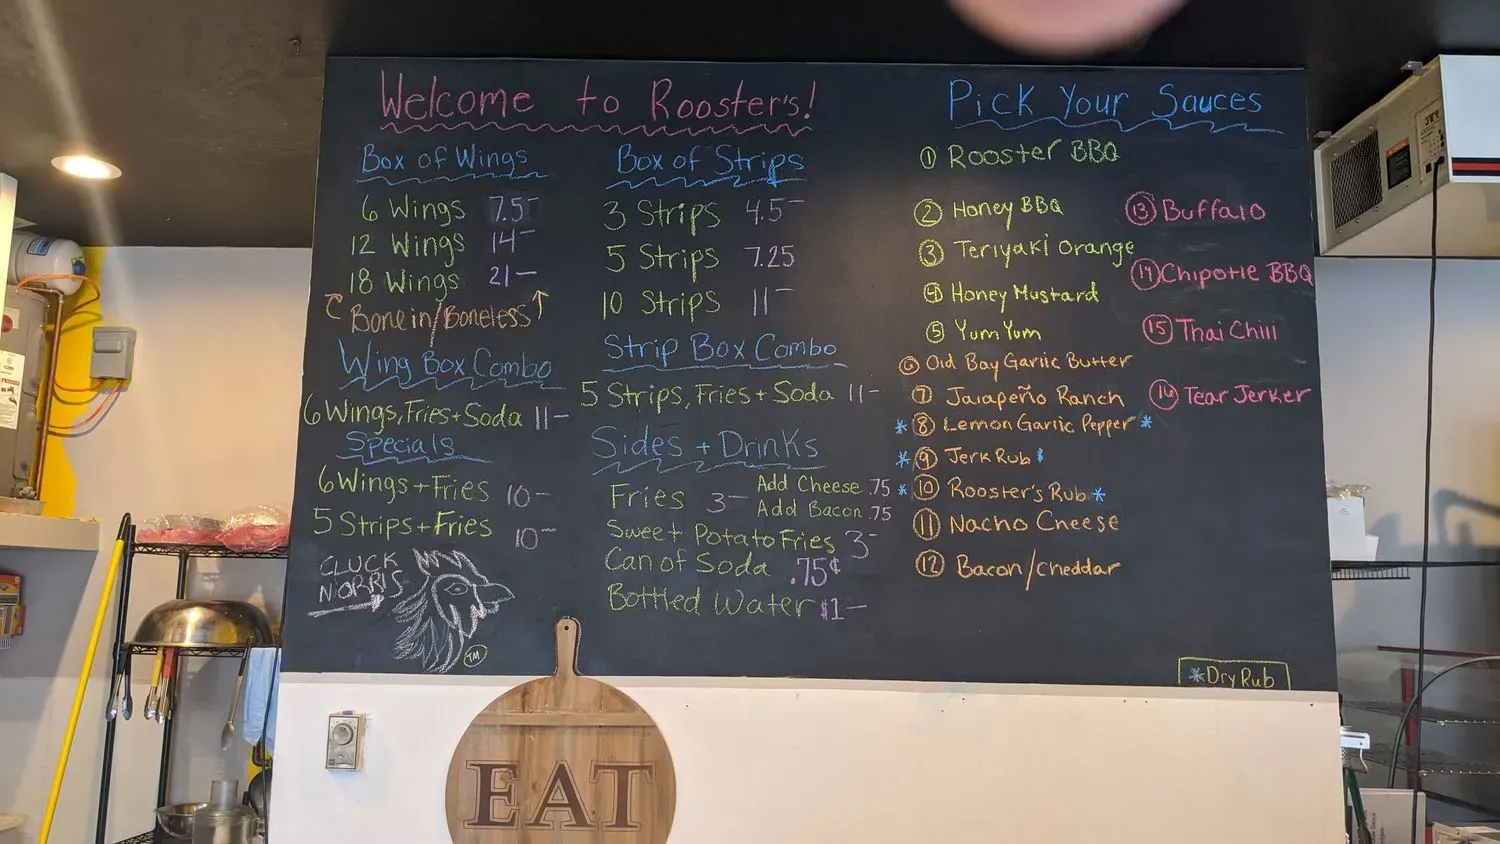 Welcome to Rooster's!
Box of Wings
6 Wings 7.5-
12 Wings 14-
18 Wings 21-
Bone in/Boneless
Wing Box Combo
6 Wings, Fries + Soda 11-
Specials
6 Wings + Fries 10-
5 Strips + Fries 10-
CLUCK
NORRIS
TM
Box of Strips
3 Strips 4.5-
5 Strips 7.25
10 Strips 11-
Strip Box Combo
5 Strips, Fries + Soda 11-
Sides + Drinks
Fries 3-
Add Cheese .75
Add Bacon .75
Sweet Potato Fries 3-
Can of Soda .75¢
Bottled Water $1-
Pick Your Sauces
1 Rooster BBQ
2 Honey BBQ
3 Teriyaki Orange
4 Honey Mustard
5 Yum Yum
6 Old Bay Garlic Butter
7 Jalapeño Ranch
*8 Lemon Garlic Pepper*
*9 Jerk Rub*
*10 Rooster's Rub*
11 Nacho Cheese
12 Bacon/cheddar
13 Buffalo
14 Chipotle BBQ
15 Thai Chili
16 Tear Jerker
*Dry Rub
EAT